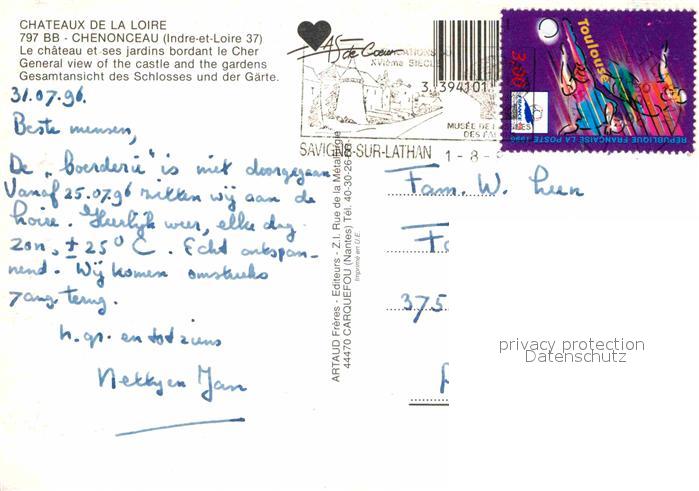 CHATEAUX DE LA LOIRE
797 BB - CHENONCEAU (Indre-et-Loire 37)
Le château et ses jardins bordant le Cher
General view of the castle and the gardens
Gesamtansicht des Schlosses und der Gärte.
31.07.96.
Beste mensen,
De „boerderij" is niet doorgegaan
Vanaf 25.07.96 zitten wij aan de
Loire. Heerlijk weer, elke dag
zon, ± 25° C. Echt ontspan-
nend. Wij komen omstreeks
7 aug. terug.
h. gr. en tot ziens
Nelly en Jan
ARTAUD Frères - Editeurs - Z.I. Rue de la Métallurgie
44470 CARQUEFOU (Nantes) Tél. 40-30-28
Imprimé en U.E.
AS de Coeur
XVIème SIECLE
3 394101
MUSÉE DE
SAVIGNE-SUR-LATHAN
1-8-
Toulouse
3,00
FRANCE
RÉPUBLIQUE FRANÇAISE LA POSTE 1996
Fam. W.
375
privacy protection
Datenschutz